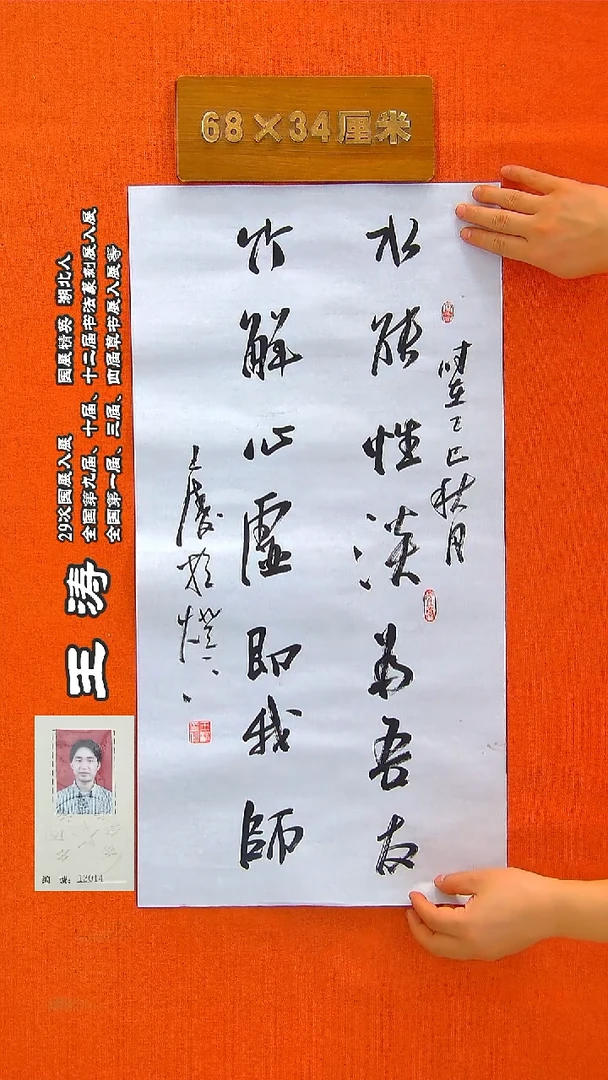 68×34厘米
水能性淡為吾友
竹解心虛即我師
时在丁巳秋月
王涛
29次国展入展 国展精英 湖北人
全国第九届、十届、十二届书法篆刻展入展
全国第一届、三届、四届草书展入展等
12014